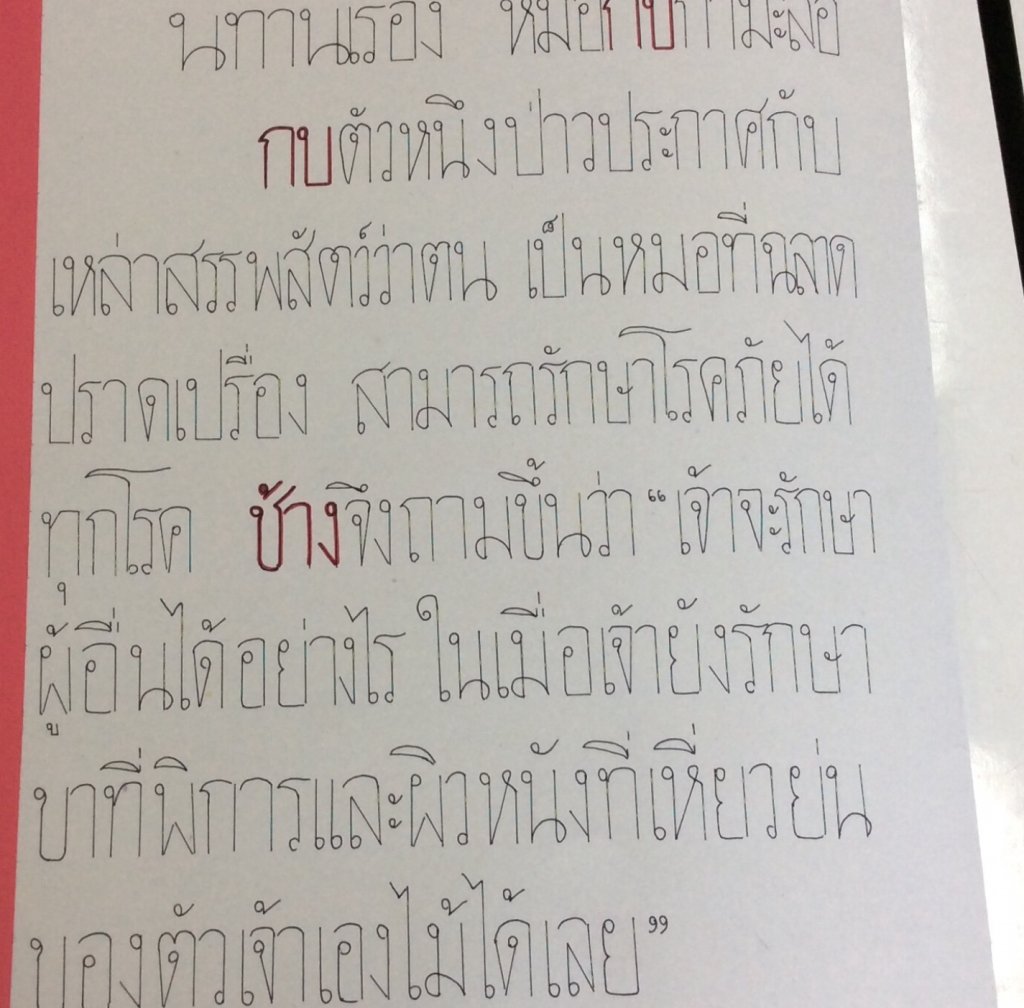 นิทานเรื่อง หมอกบกำมะลอ
กบตัวหนึ่งป่าวประกาศกับ
เหล่าสรรพสัตว์ว่าตน เป็นหมอที่ฉลาด
ปราดเปรื่อง สามารถรักษาโรคภัยได้
ทุกโรค ช้างจึงถามขึ้นว่า “เจ้าจะรักษา
ผู้อื่นได้อย่างไร ในเมื่อเจ้ายังรักษา
ขาที่พิการและผิวหนังที่เหี่ยวย่น
ของตัวเจ้าเองไม่ได้เลย”